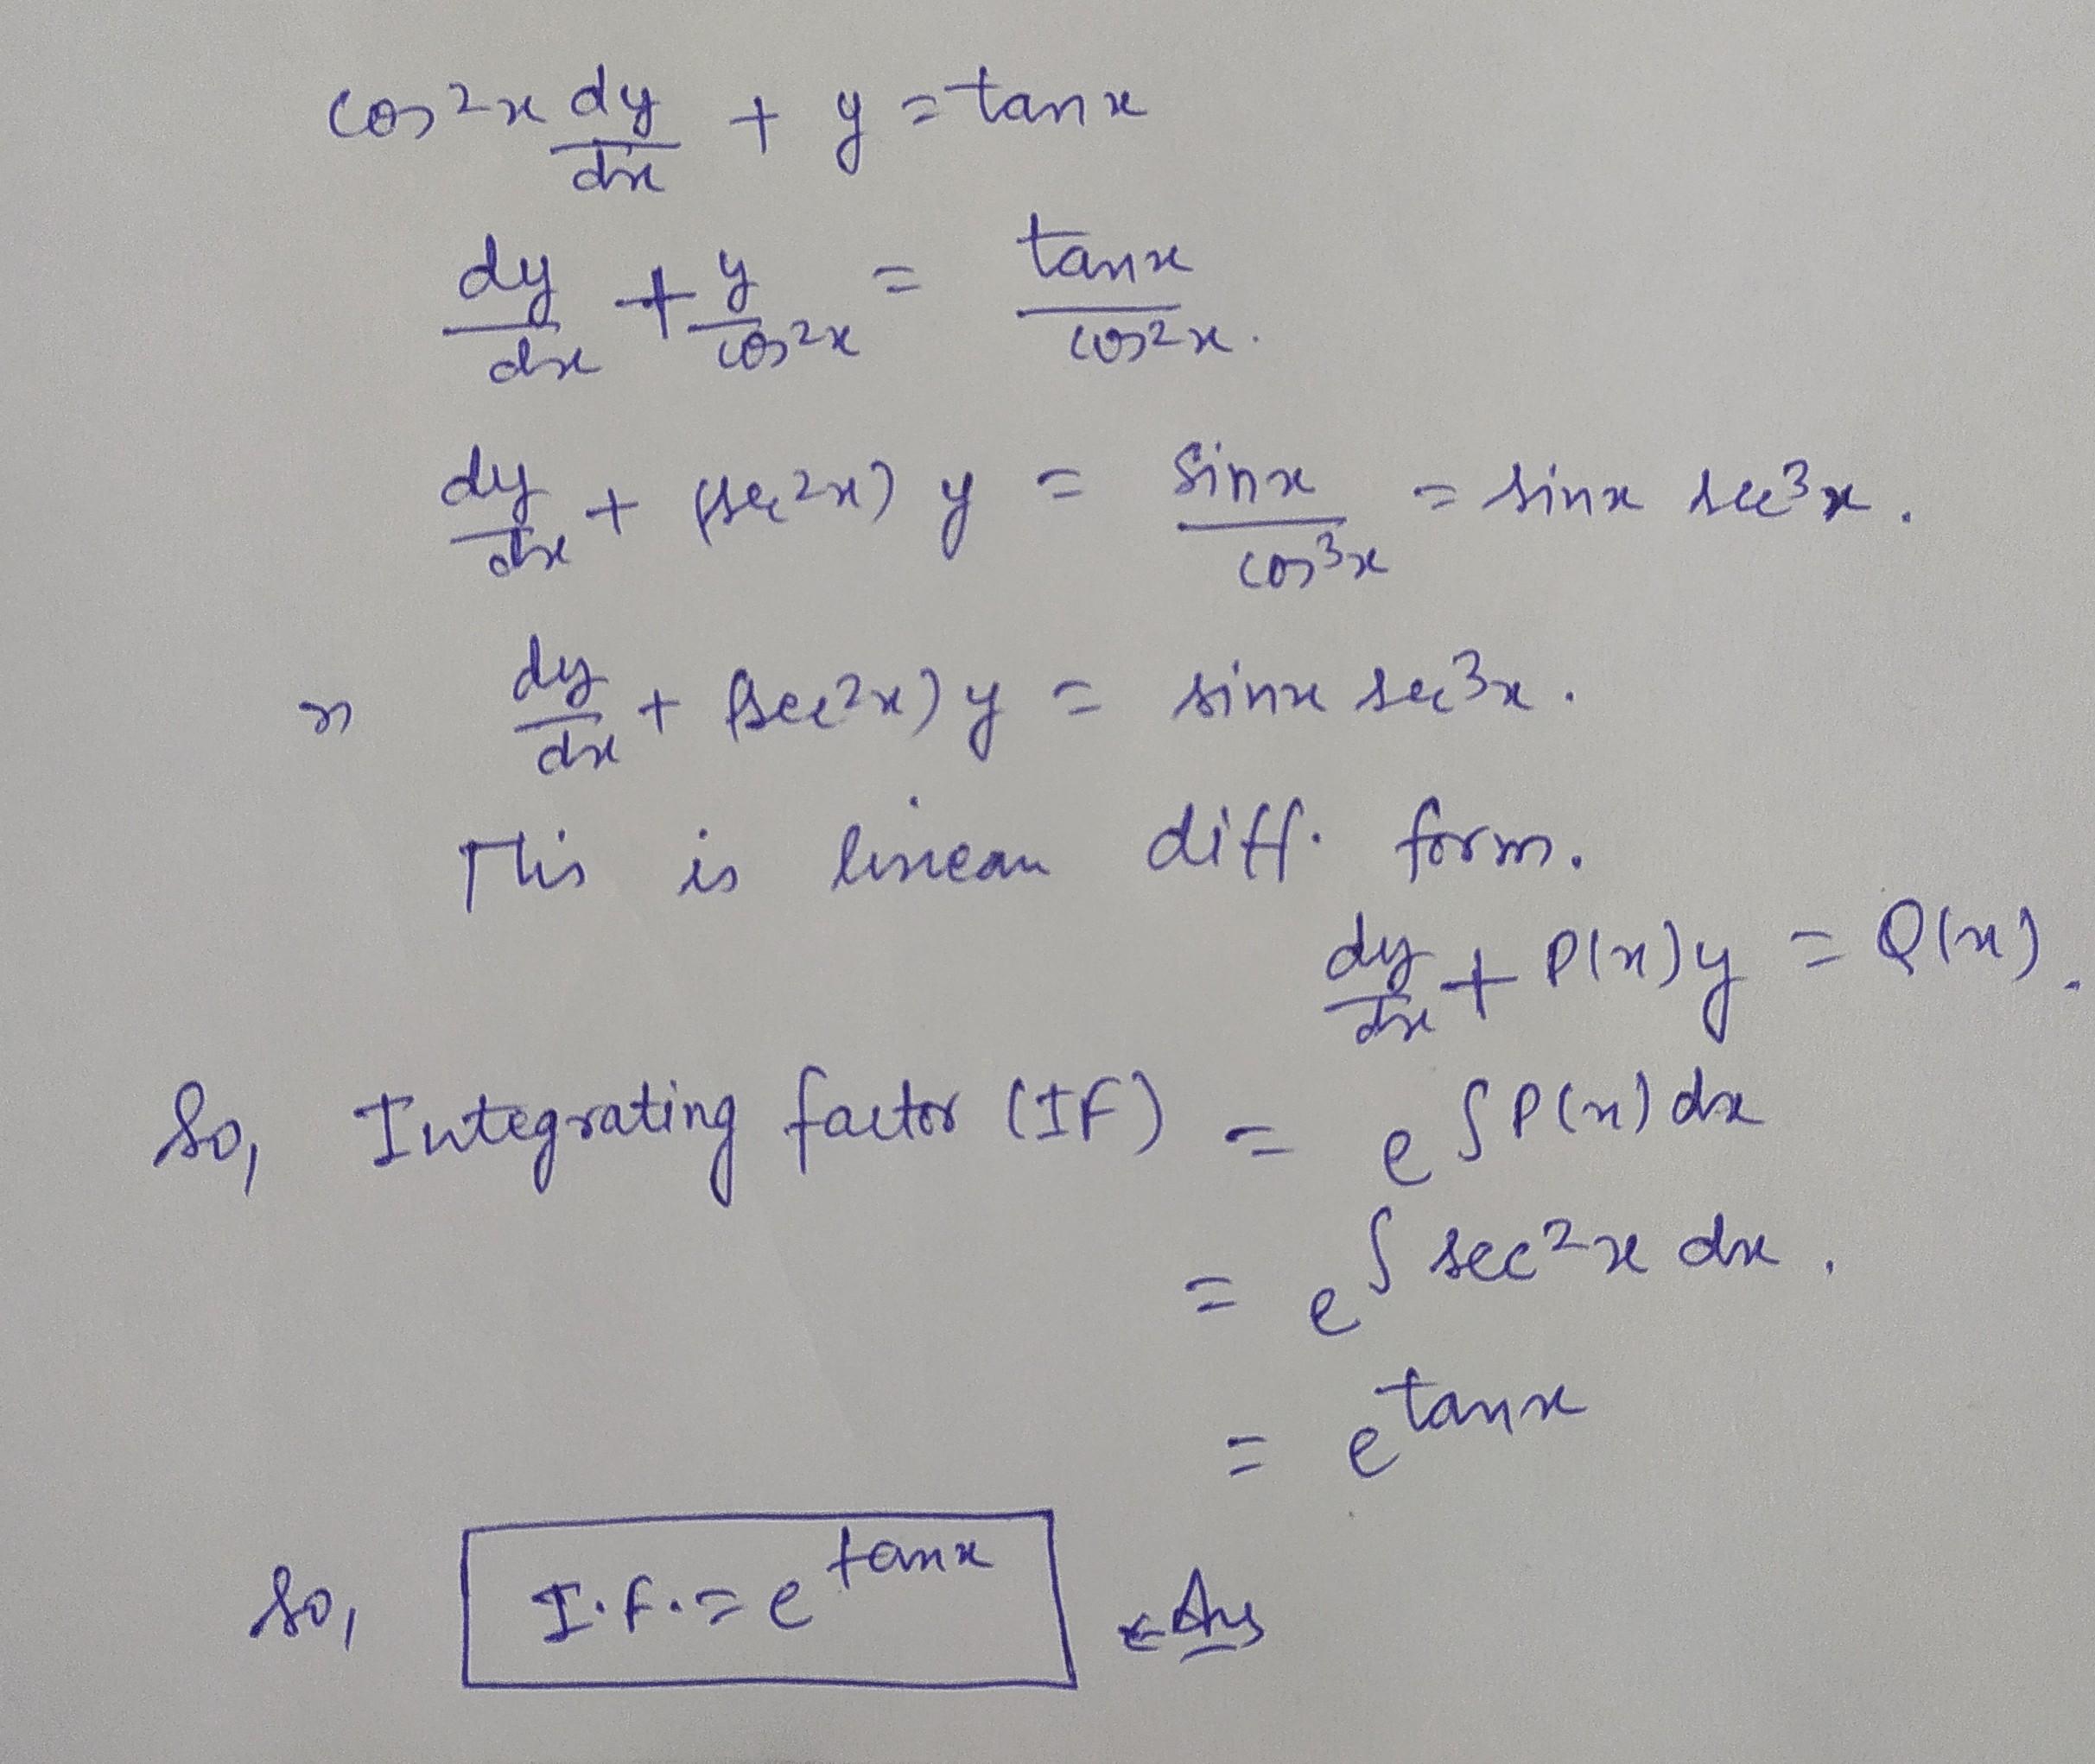 cos²x dy/dx + y = tanx
dy/dx + y/cos²x = tanx/cos²x.
dy/dx + (sec²x) y = sinx/cos³x = sinx sec³x.
⇒ dy/dx + (sec²x) y = sinx sec³x.
This is linear diff. form.
dy/dx + P(x)y = Q(x).
So, Integrating factor (IF) = e^∫P(x)dx
= e^∫sec²x dx.
= e^tanx
So, I.F. = e^tanx ← Ans